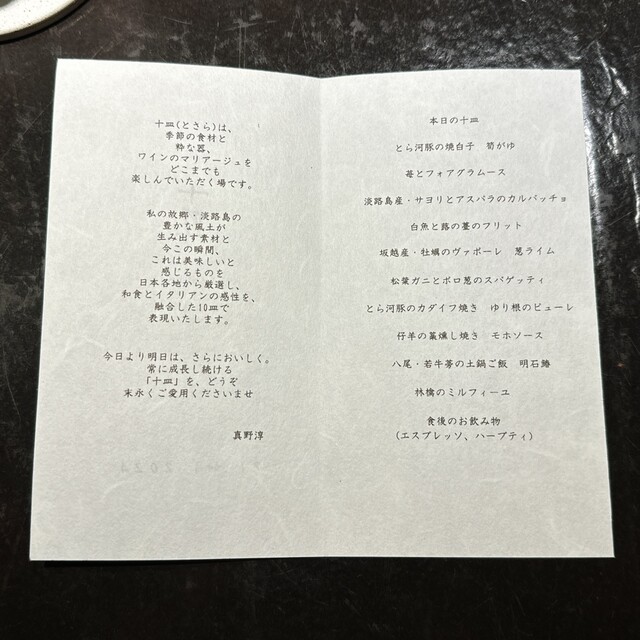 十皿(とさら)は、
季節の食材と
粋な器、
ワインのマリアージュを
どこまでも
楽しんでいただく場です。
私の故郷・淡路島の
豊かな風土が
生み出す素材と
今この瞬間、
これは美味しいと
感じるものを
日本各地から厳選し、
和食とイタリアンの感性を、
融合した10皿で
表現いたします。
今日より明日は、さらにおいしく。
常に成長し続ける
「十皿」を、どうぞ
末永くご愛用くださいませ
真野淳
本日の十皿
とら河豚の焼白子 筍がゆ
苺とフォアグラムース
淡路島産・サヨリとアスパラのカルパッチョ
白魚と蕗の薹のフリット
坂越産・牡蠣のヴァポーレ 葱ライム
松葉ガニとポロ葱のスパゲッティ
とら河豚のカダイフ焼き ゆり根のピューレ
仔羊の藁燻し焼き モホソース
八尾・若牛蒡の土鍋ご飯 明石鰆
林檎のミルフィーユ
食後のお飲み物
(エスプレッソ、ハーブティ)